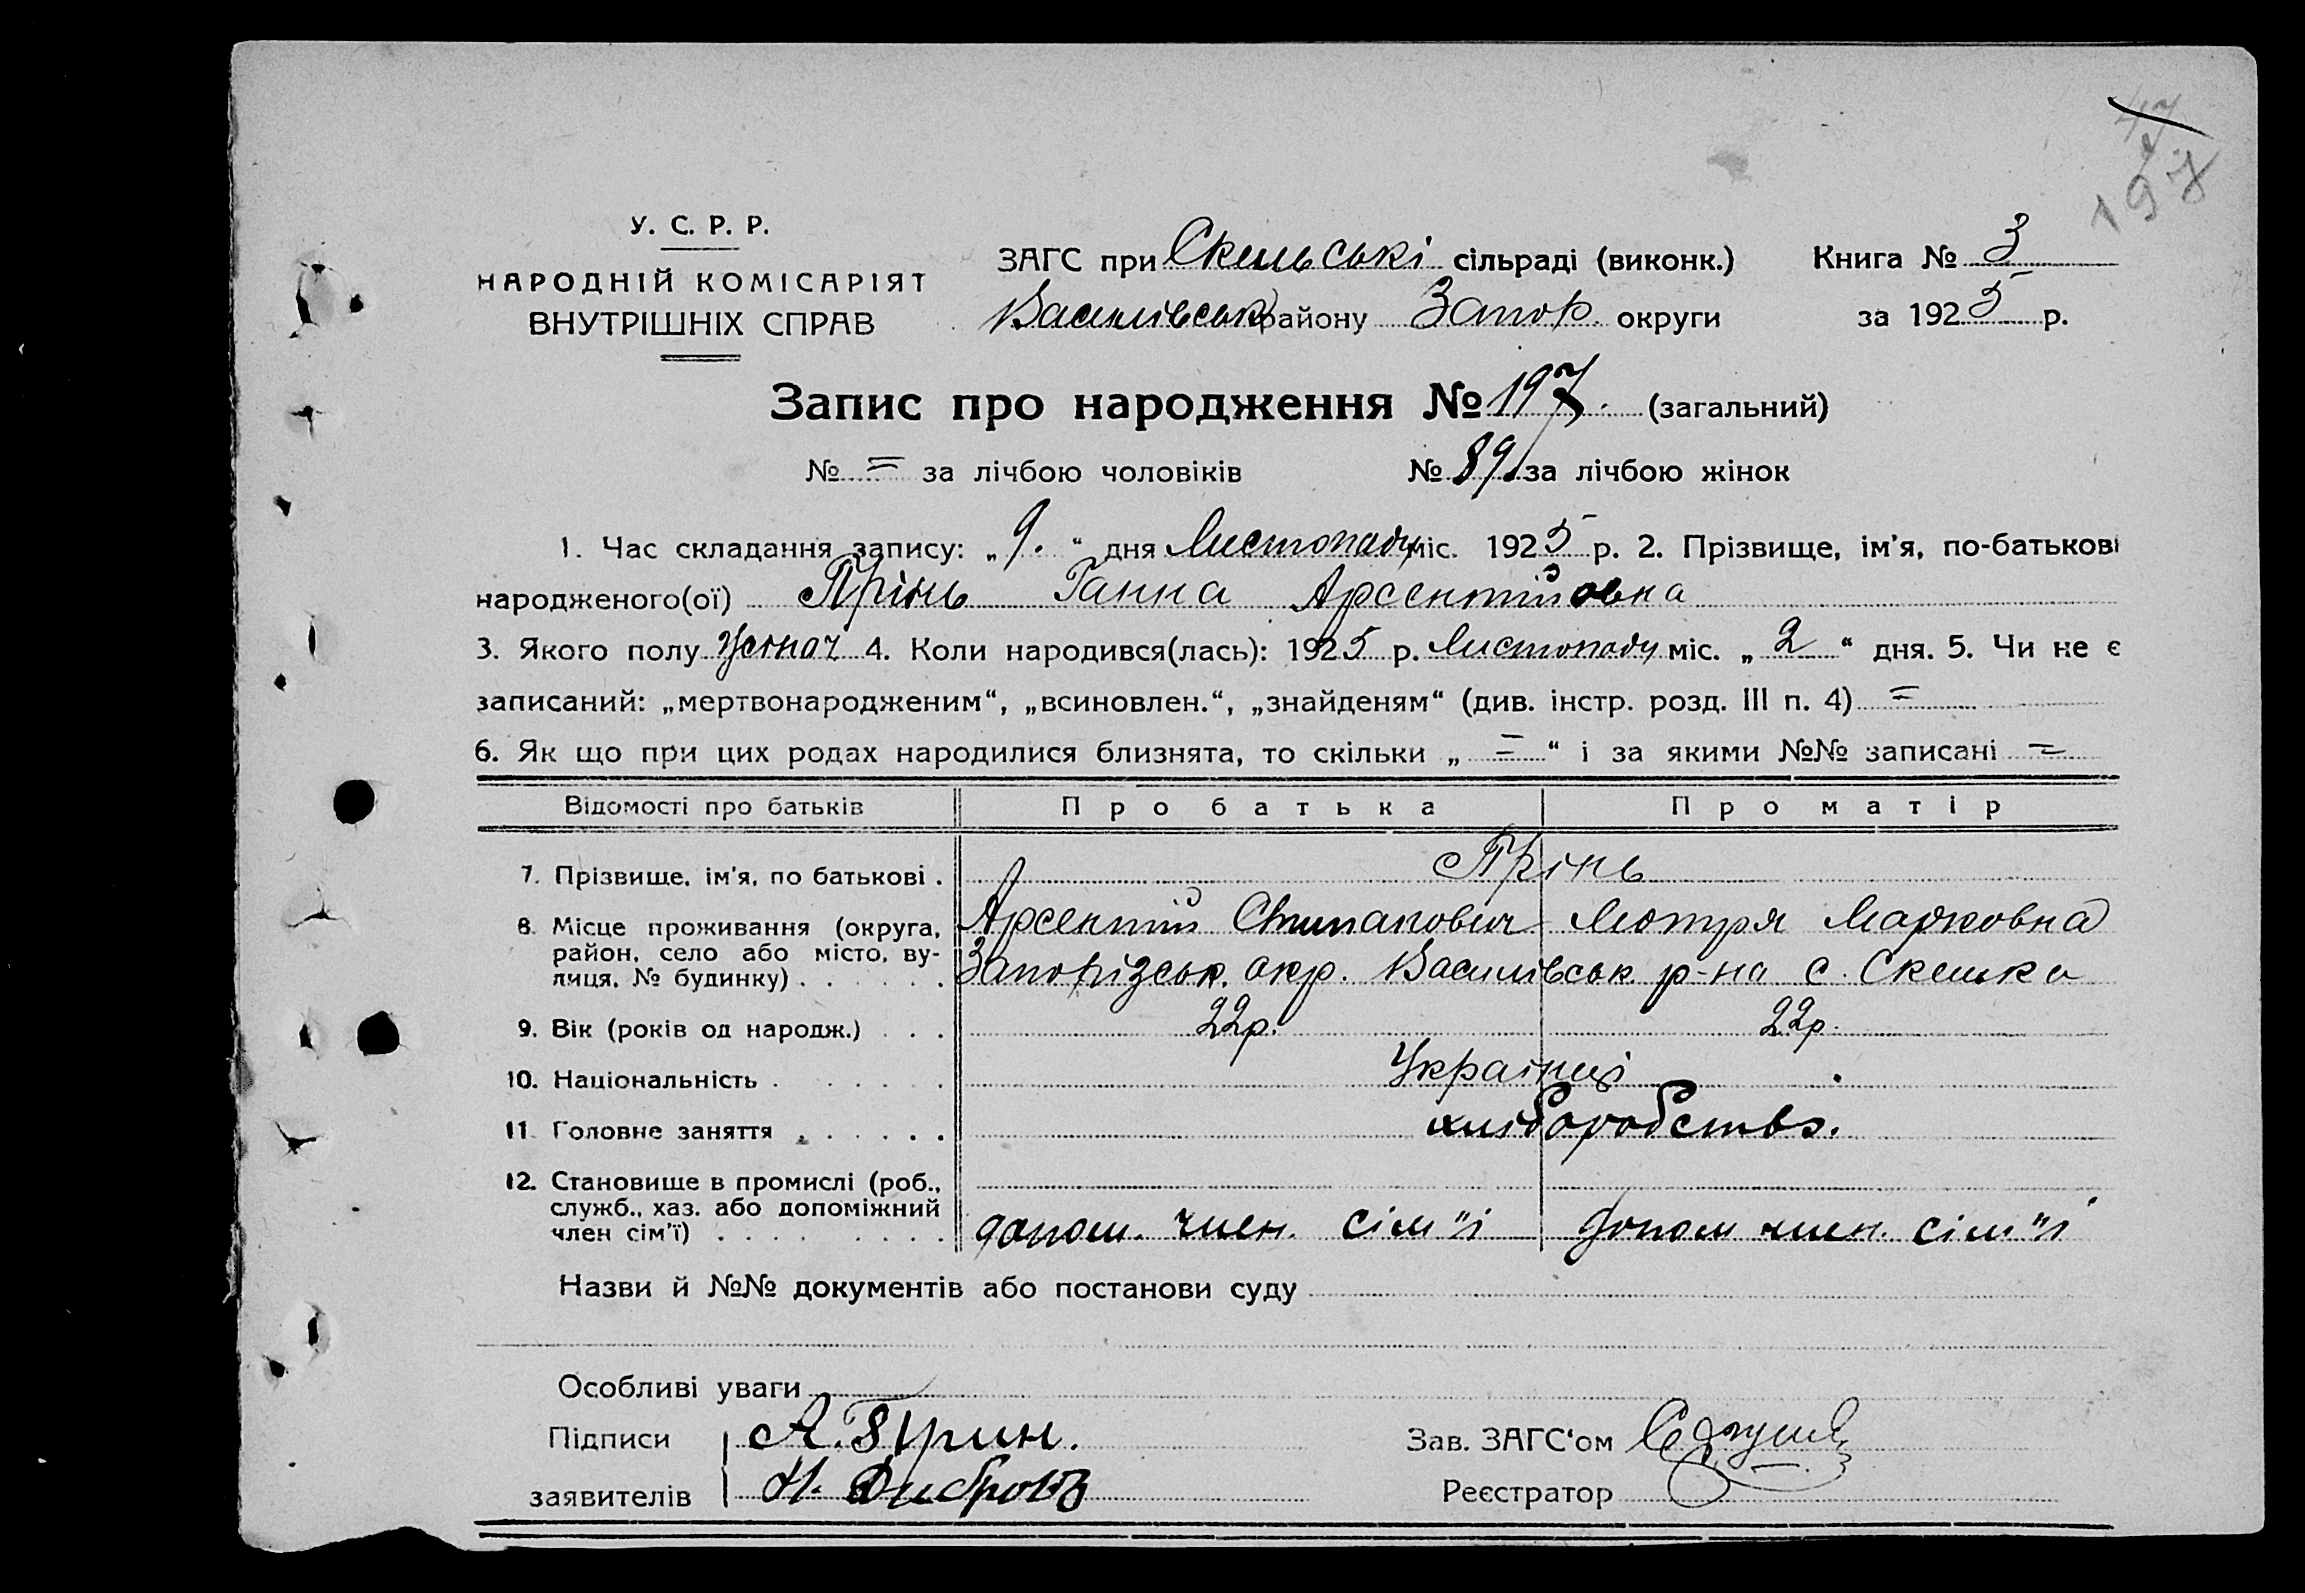 47
197
У. С. Р. Р.
НАРОДНІЙ КОМІСАРІЯТ
ВНУТРІШНІХ СПРАВ
ЗАГС при Скельські сільраді (виконк.) Книга № 3
Василівськ району Запор. округи за 1925 р.
Запис про народження № 197. (загальний)
№ = за лічбою чоловіків № 89 за лічбою жінок
1. Час складання запису: „9.“ дня Листопаду міс. 1925 р. 2. Прізвище, ім'я, по-батькові
народженого(ої) Прінь Ганна Арсентійовна
3. Якого полу жіноч 4. Коли народився(лась): 1925 р. Листопаду міс. „2“ дня. 5. Чи не є
записаний: „мертвонародженим“, „всиновлен.“, „знайденям“ (див. інстр. розд. III п. 4) =
6. Як що при цих родах народилися близнята, то скільки „=“ і за якими №№ записані =
Відомості про батьків Про батька Про матір
7. Прізвище, ім'я, по батькові . Прінь
Арсентій Степанович Мотря Марковна
8. Місце проживання (округа, район, село або місто, вулиця, № будинку) . . . . . . Запорізськ. окр. Василівськ. р-на с. Скелька
9. Вік (років од народж.) . . . 22р. 22р.
10. Національність . . . . . . Українці
11. Головне заняття . . . . . . хліборобство.
12. Становище в промислі (роб., служб., хаз. або допоміжний член сім'ї) . . . . . . . . допом. член. сім"ї допом член. сім"ї
Назви й №№ документів або постанови суду
Особливі уваги
Підписи А. Прин.
заявителів Н. Диброва
Зав. ЗАГС'ом
Реєстратор